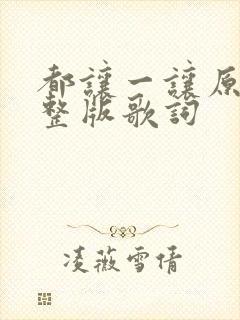 都讓一讓原
整版歌詞
凌薇雪倩